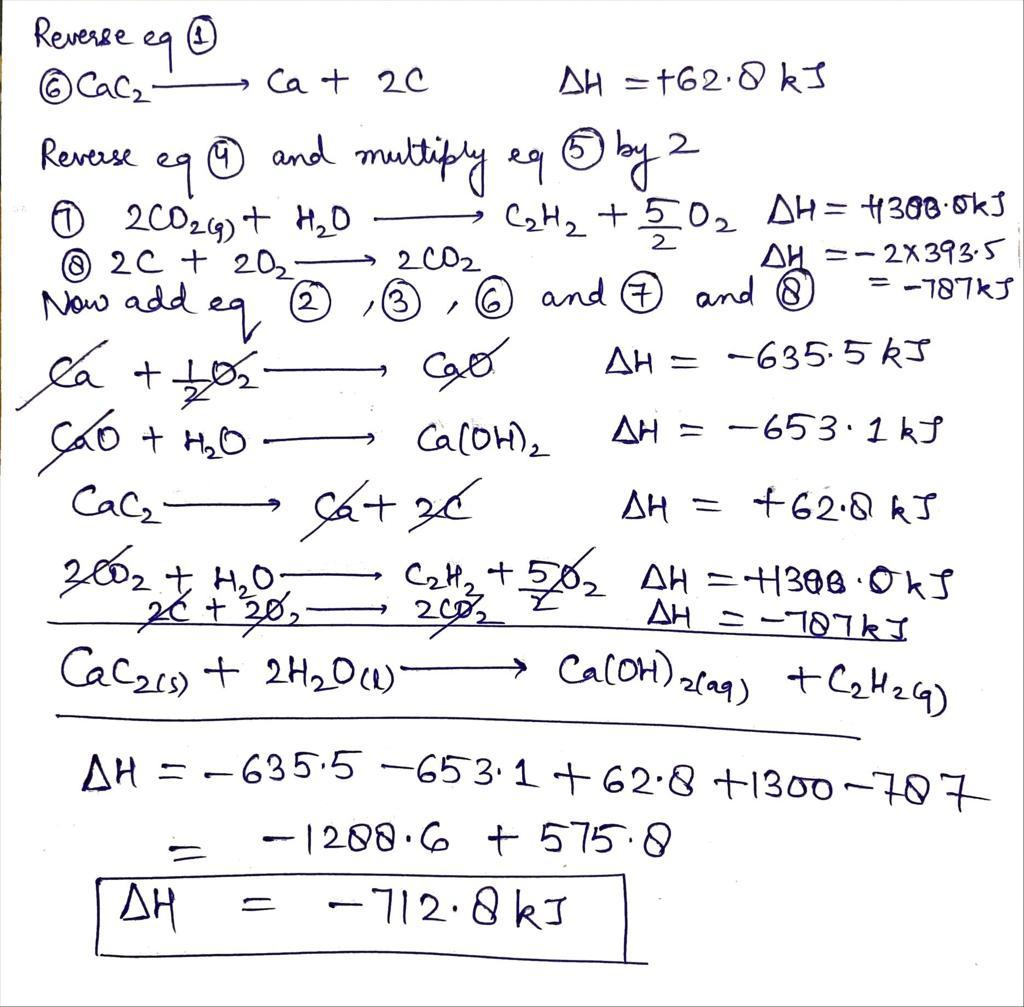 Reverse eq ①
⑥ CaC₂ ⟶ Ca + 2C ΔH = +62.8 kJ
Reverse eq ④ and multiply eq ⑤ by 2
⑦ 2CO₂(g) + H₂O ⟶ C₂H₂ + 5/2 O₂ ΔH = +1300.0kJ
⑧ 2C + 2O₂ ⟶ 2CO₂ ΔH = -2×393.5
Now add eq ②, ③, ⑥ and ⑦ and ⑧ = -787kJ
Ca + 1/2 O₂ ⟶ CaO ΔH = -635.5 kJ
CaO + H₂O ⟶ Ca(OH)₂ ΔH = -653.1 kJ
CaC₂ ⟶ Ca + 2C ΔH = +62.8 kJ
2CO₂ + H₂O ⟶ C₂H₂ + 5/2 O₂ ΔH = +1300.0kJ
2C + 2O₂ ⟶ 2CO₂ ΔH = -787kJ
CaC₂(s) + 2H₂O(l) ⟶ Ca(OH)₂(aq) + C₂H₂(g)
ΔH = -635.5 -653.1 + 62.8 +1300 -787
= -1288.6 + 575.8
ΔH = -712.8 kJ